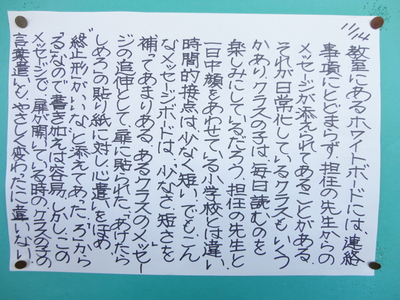 11/14
教室にあるホワイトボードには、連絡
事項にとどまらず、担任の先生からの
メッセージが添えられてあることがある。
それが日常化しているクラスもいくつ
かあり、クラスの子は、毎日読むのを
楽しみにしているだろう。担任の先生と
一日中顔をあわせている小学校とは違い、
時間的接点は少なく、短い。でも、こん
なメッセージボードは、少なさ、短さを
補ってあまりある。あるクラスのメッセー
ジの追伸として、扉に貼られた、“あけたら
しめろ”の貼り紙に対し、心遣いをほめ、
“終止形がいい”なと添えてあった。“ろ”から
“る”なので書き加えは容易。しかし、この
メッセージで、扉が開いている時のクラスの子の
言葉遣いもやさしく変わったに違いない。